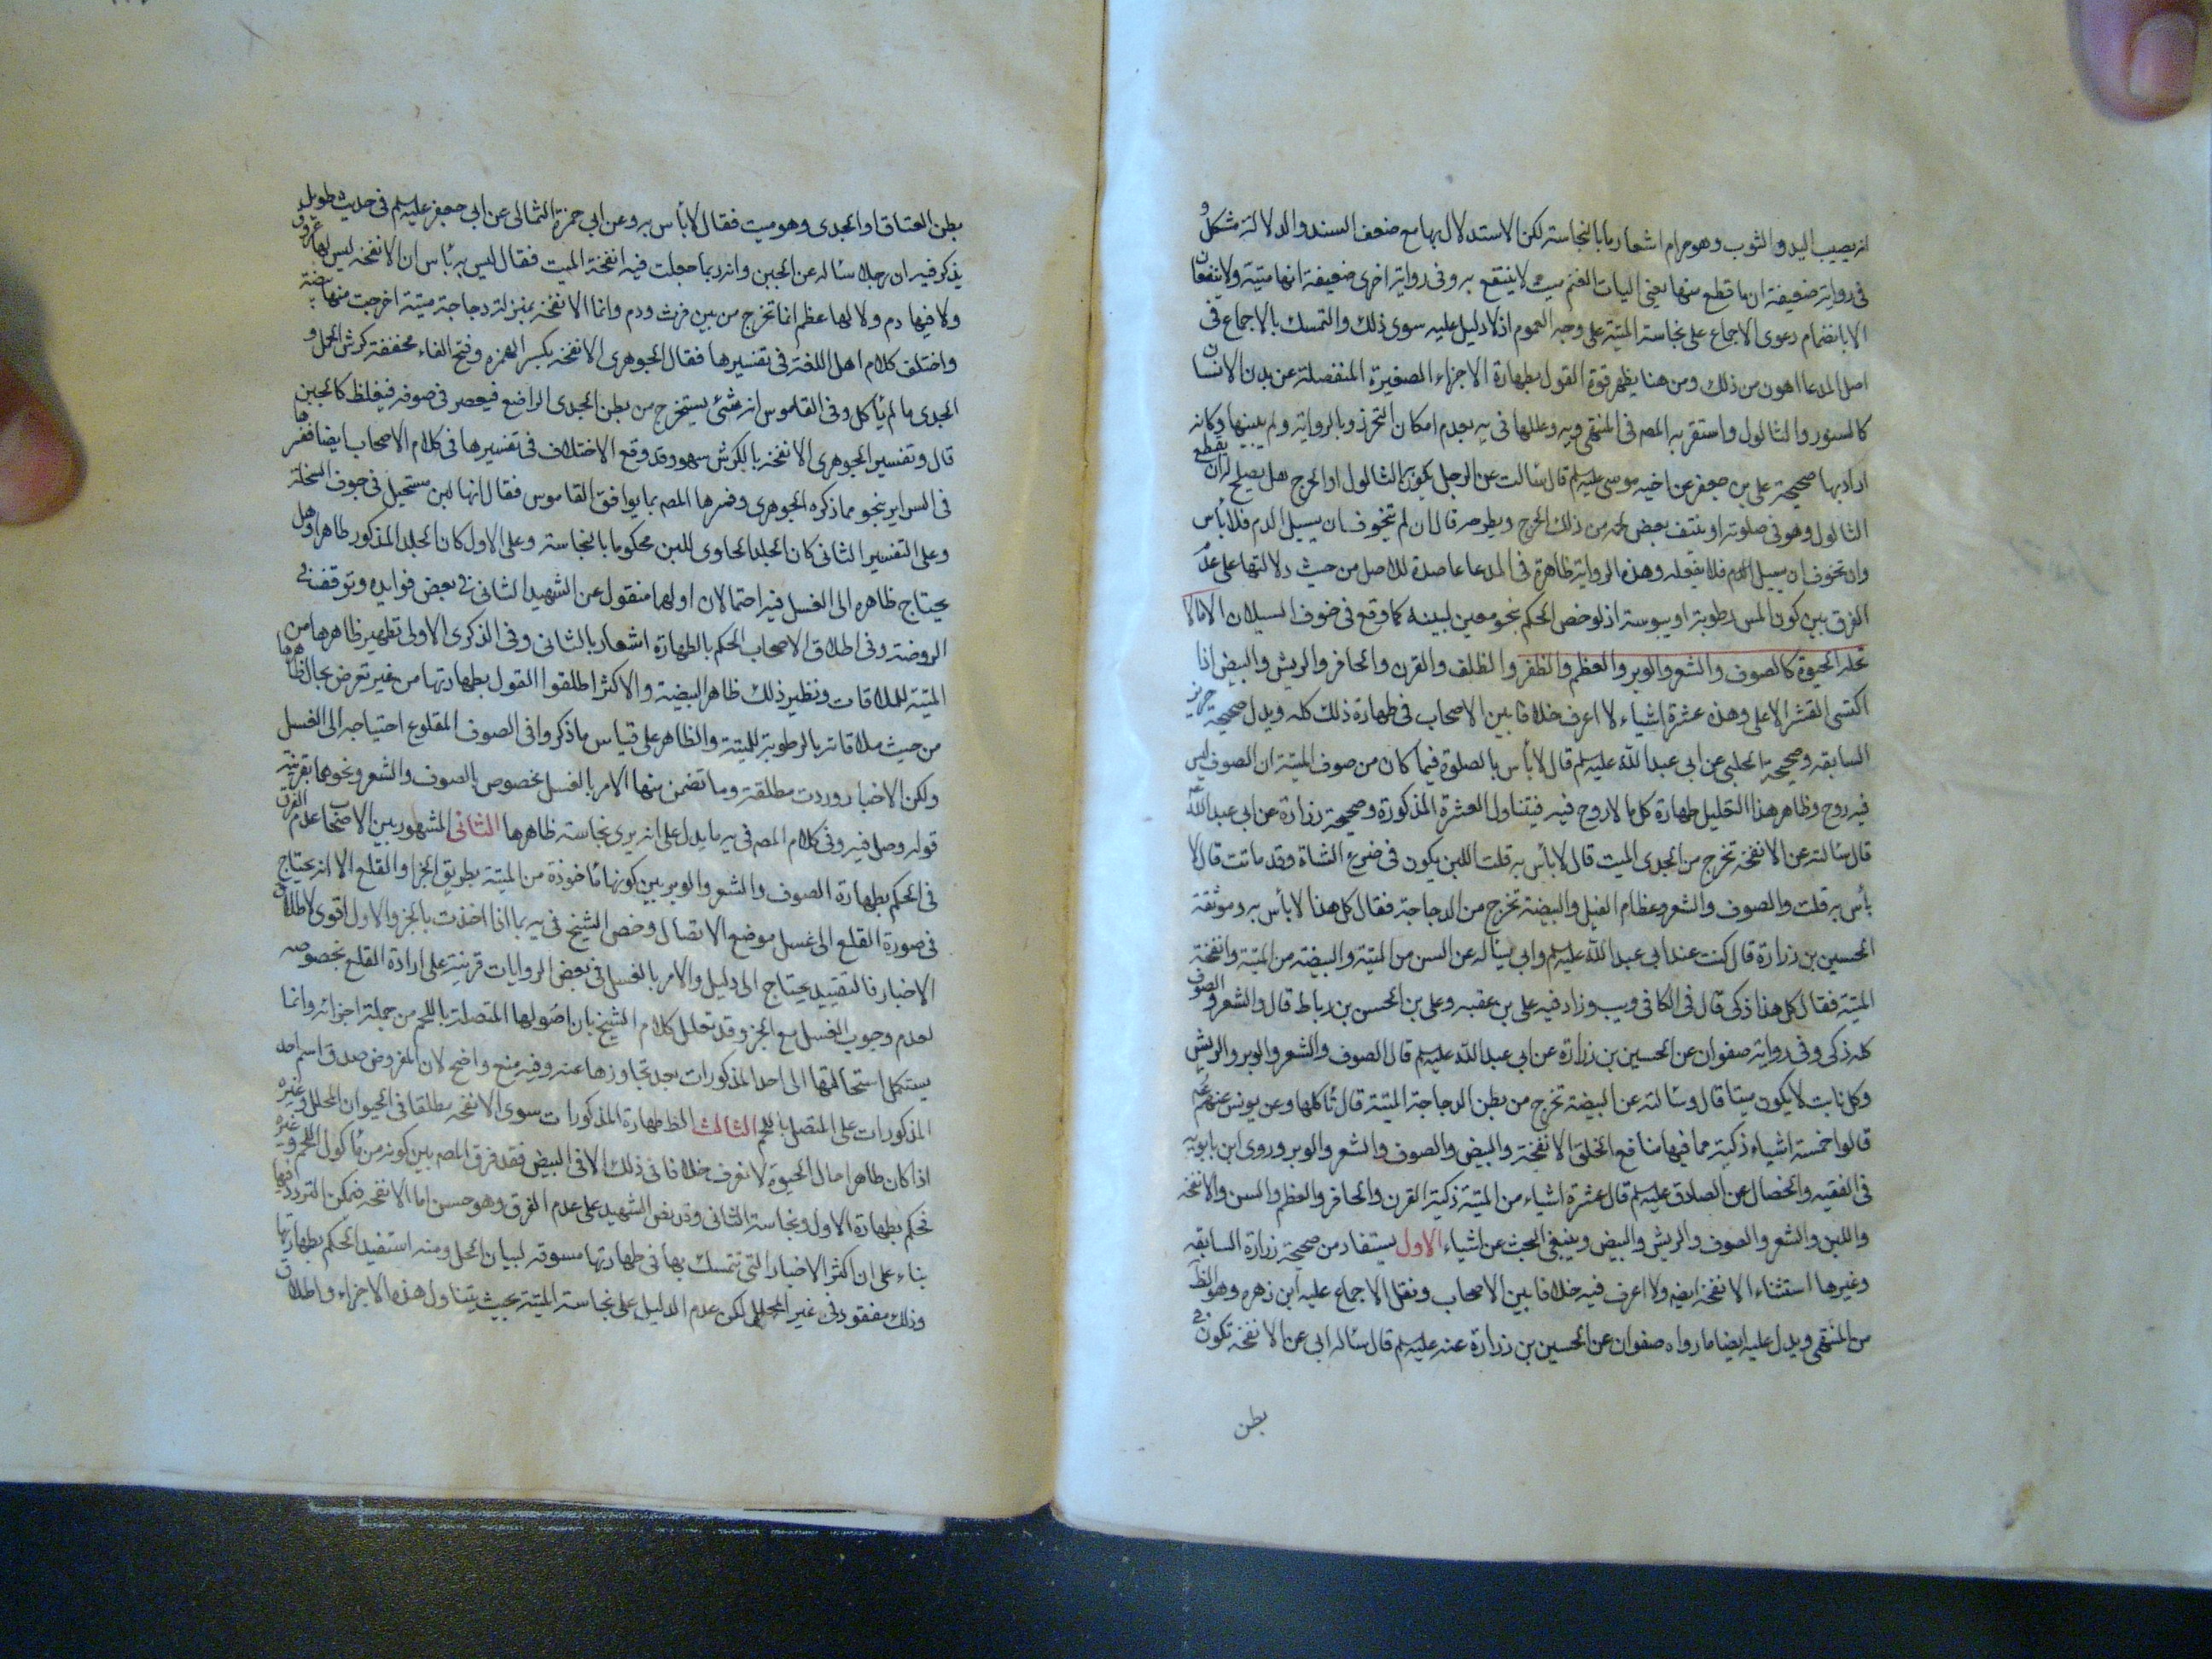 انه يصيب اليد والثوب وهو حرام اشعار بالنجاسة لكن الاستدلال بها مع ضعف السند والدلالة مشكل و
فى رواية ضعيفة ان ما قطع منها يعنى اليات الغنم ميت لا ينتفع به وفى رواية اخرى ضعيفة انها ميتة ولا ينفعان
الا بانضمام دعوى الاجماع على نجاسة الميتة على وجه العموم اذ لا دليل عليه سوى ذلك والتمسك بالاجماع فى
اصل المدعا اهون من ذلك ومن هنا يظهر قوة القول بطهارة الاجزاء الصغيرة المنفصلة عن بدن الانسان
كالبثور والثالول واستقر به المصر فى المنتهى ويه وعللها فى يه بعدم امكان التحرز وبالرواية ولم يبينها وكانه
اراد بها صحيحة على بن جعفر عن اخيه موسى عليه السلم قال سألت عن الرجل يكون به الثالول او الجرح هل يصلح له ان يقطع
الثالول وهو فى صلوته او ينتف بعض لحمه من ذلك الجرح ويطرحه قال ان لم تتخوف ان يسيل الدم فلا بأس
وان تخوف ان يسيل الدم فلا يفعله وهذه الرواية ظاهرة فى المدعا عاضدة للاصل من حيث دلالتها على عدم
الفرق بين كون المس برطوبة او يبوسة اذ لو خص الحكم بنحو معين لبينه كما وقع فى خوف السيلان الا ما لا
تحله الحيوة كالصوف والشعر والوبر والعظم والظفر والظلف والقرن والحافر والريش والبيض اذا
اكتسى القشر الاعلى وهذه عشرة اشياء لا اعرف خلافا بين الاصحاب فى طهارة ذلك كله ويدل صحيحة حريز
السابقة وصحيحة الحلبى عن ابى عبد الله عليه السلم قال لا بأس بالصلوة فيما كان من صوف الميتة ان الصوف ليس
فيه روح وظاهر هذا التعليل طهارة كل ما لا روح فيه فيتناول العشرة المذكورة وصحيحة زرارة عن ابى عبد الله ع
قال سألته عن الانفخة تخرج من الجدى الميت قال لا بأس به قلت اللبن يكون فى ضرع الشاة وقد ماتت قال لا
بأس به قلت والصوف والشعر وعظام الفيل والبيضة تخرج من الدجاجة فقال كل هذا لا بأس به وموثقة
الحسين بن زرارة قال كنت عند ابى عبد الله عليه السلم وابى يسأله عن السن من الميتة والبيضة من الميتة وانفخة
الميتة فقال كل هذا ذكى قال فى الكافى ويب وزاد فيه على بن عقبه وعلى بن الحسن بن رباط قال والشعر والصوف
كله ذكى وفى رواية صفوان عن الحسين بن زرارة عن ابى عبد الله عليه السلم قال الصوف والشعر والوبر والريش
وكل نابت لا يكون ميتا قال وسألته عن البيضة تخرج من بطن الدجاجة الميتة قال تأكلها وعن يونس عنهم ع
قالوا خمسة اشياء ذكية مما فيها منافع الخلق الانفخة والبيض والصوف والشعر والوبر وروى ابن بابويه
فى الفقيه والخصال عن الصادق عليه السلم قال عشرة اشياء من الميتة ذكية القرن والحافر والعظم والسن والانفخة
واللبن والشعر والصوف والريش والبيض وينبغى البحث عن اشياء الاول يستفاد من صحيحة زرارة السابقة
وغيرها استثناء الانفخة ايضا ولا اعرف فيه خلافا بين الاصحاب ونقل الاجماع عليه ابن زهره وهو الظ
من المنتهى ويدل عليه ايضا ما رواه صفوان عن الحسين بن زرارة عنه عليه السلم قال سأله ابى عن الانفخة تكون فى
بطن
بطن العناق او الجدى وهو ميت فقال لا بأس به وعن ابى حمزة الثمالى عن ابى جعفر عليه السلم فى حديث طويل
يذكر فيه ان رجلا سأله عن الجبن وانه ربما جعلت فيه انفخة الميت فقال ليس به بأس ان الانفخة ليس لها عروق
ولا فيها دم ولا لها عظم انما تخرج من بين فرث ودم وانما الانفخة بمنزلة دجاجة ميتة اخرجت منها بيضة
واختلف كلام اهل اللغة فى تفسيرها فقال الجوهرى الانفخة بكسر الهمزة وفتح الفاء مخففة كرش الحمل و
الجدى ما لم يأكل وفى القاموس انه شئ يستخرج من بطن الجدى الراضع فيعصر فى صوفه فيغلظ كالجبن
قال وتفسير الجوهرى الانفخة بالكرش سهو وقد وقع الاختلاف فى تفسيرها فى كلام الاصحاب ايضا ففسرها
فى السراير بنحو مما ذكره الجوهرى وفسرها المصر بما يوافق القاموس فقال انها لبن مستحيل فى جوف السخلة
وعلى التفسير الثانى كان الجلد الحاوى للبن محكوما بالنجاسة وعلى الاول كان الجلد المذكور طاهرا وهل
يحتاج ظاهره الى الغسل فيه احتمالان اولهما منقول عن الشهيد الثانى فى بعض فوايده وتوقف فى
الروضة وفى اطلاق الاصحاب الحكم بالطهارة اشعار بالثانى وفى الذكرى الاولى تطهير ظاهرها من
الميتة للملاقات ونظير ذلك ظاهر البيضة والاكثر اطلقوا القول بطهارتها من غير تعرض بحال ظاهرها
من حيث ملاقاته بالرطوبة للميتة والظاهر على قياس ما ذكروا فى الصوف المقلوع احتياجه الى الغسل
ولكن الاخبار وردت مطلقة وما تضمن منها الامر بالغسل مخصوص بالصوف والشعر ونحوهما بقرينة
قوله وصل فيه وفى كلام المصر فى يه ما يدل على انه يرى نجاسة ظاهرها الثانى المشهور بين الاصحاب عدم الفرق
فى الحكم بطهارة الصوف والشعر والوبر بين كونها مأخوذة من الميتة بطريق الجز او القلع الا انه يحتاج
فى صورة القلع الى غسل موضع الاتصال وخص الشيخ فى يه بما اذا اخذت بالجز والاول اقوى لاطلاق
الاخبار فالتقييد يحتاج الى دليل والامر بالغسل فى بعض الروايات قرينة على ارادة القلع بخصوصه
لعدم وجوب الغسل مع الجز وقد تعلل كلام الشيخ بان اصولها المتصلة باللحم من جملة اجزائه وانما
يستكمل استحالتها الى احد المذكورات بعد تجاوزها عنه وفيه منع واضح لان المفروض صدق اسم احد
المذكورات على المتصل باللحم الثالث الظ طهارة المذكورات سوى الانفخة مطلقا فى الحيوان المحلل وغيره
اذا كان طاهرا حال الحيوة لا نعرف خلافا فى ذلك الا فى البيض فقد فرق المصر بين كونه من مأكول اللحم وغيره
فحكم بطهارة الاول ونجاسة الثانى وقد نص الشهيد على عدم الفرق وهو حسن اما الانفخة فيمكن التردد فيها
بناء على ان اكثر الاخبار التى نتمسك بها فى طهارتها مسوقة لبيان الحل ومنه استفيد الحكم بطهارتها
وذلك مفقود فى غير المحلل لكن عدم الدليل على نجاسة الميتة بحيث يتناول هذه الاجزاء واطلاق